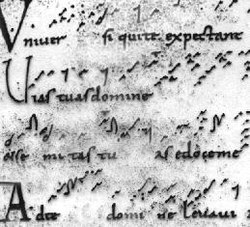 Univer si qui te expectant
Uias tuas domine
mi tas tu as edoceme
Ad te domi ne leuaui